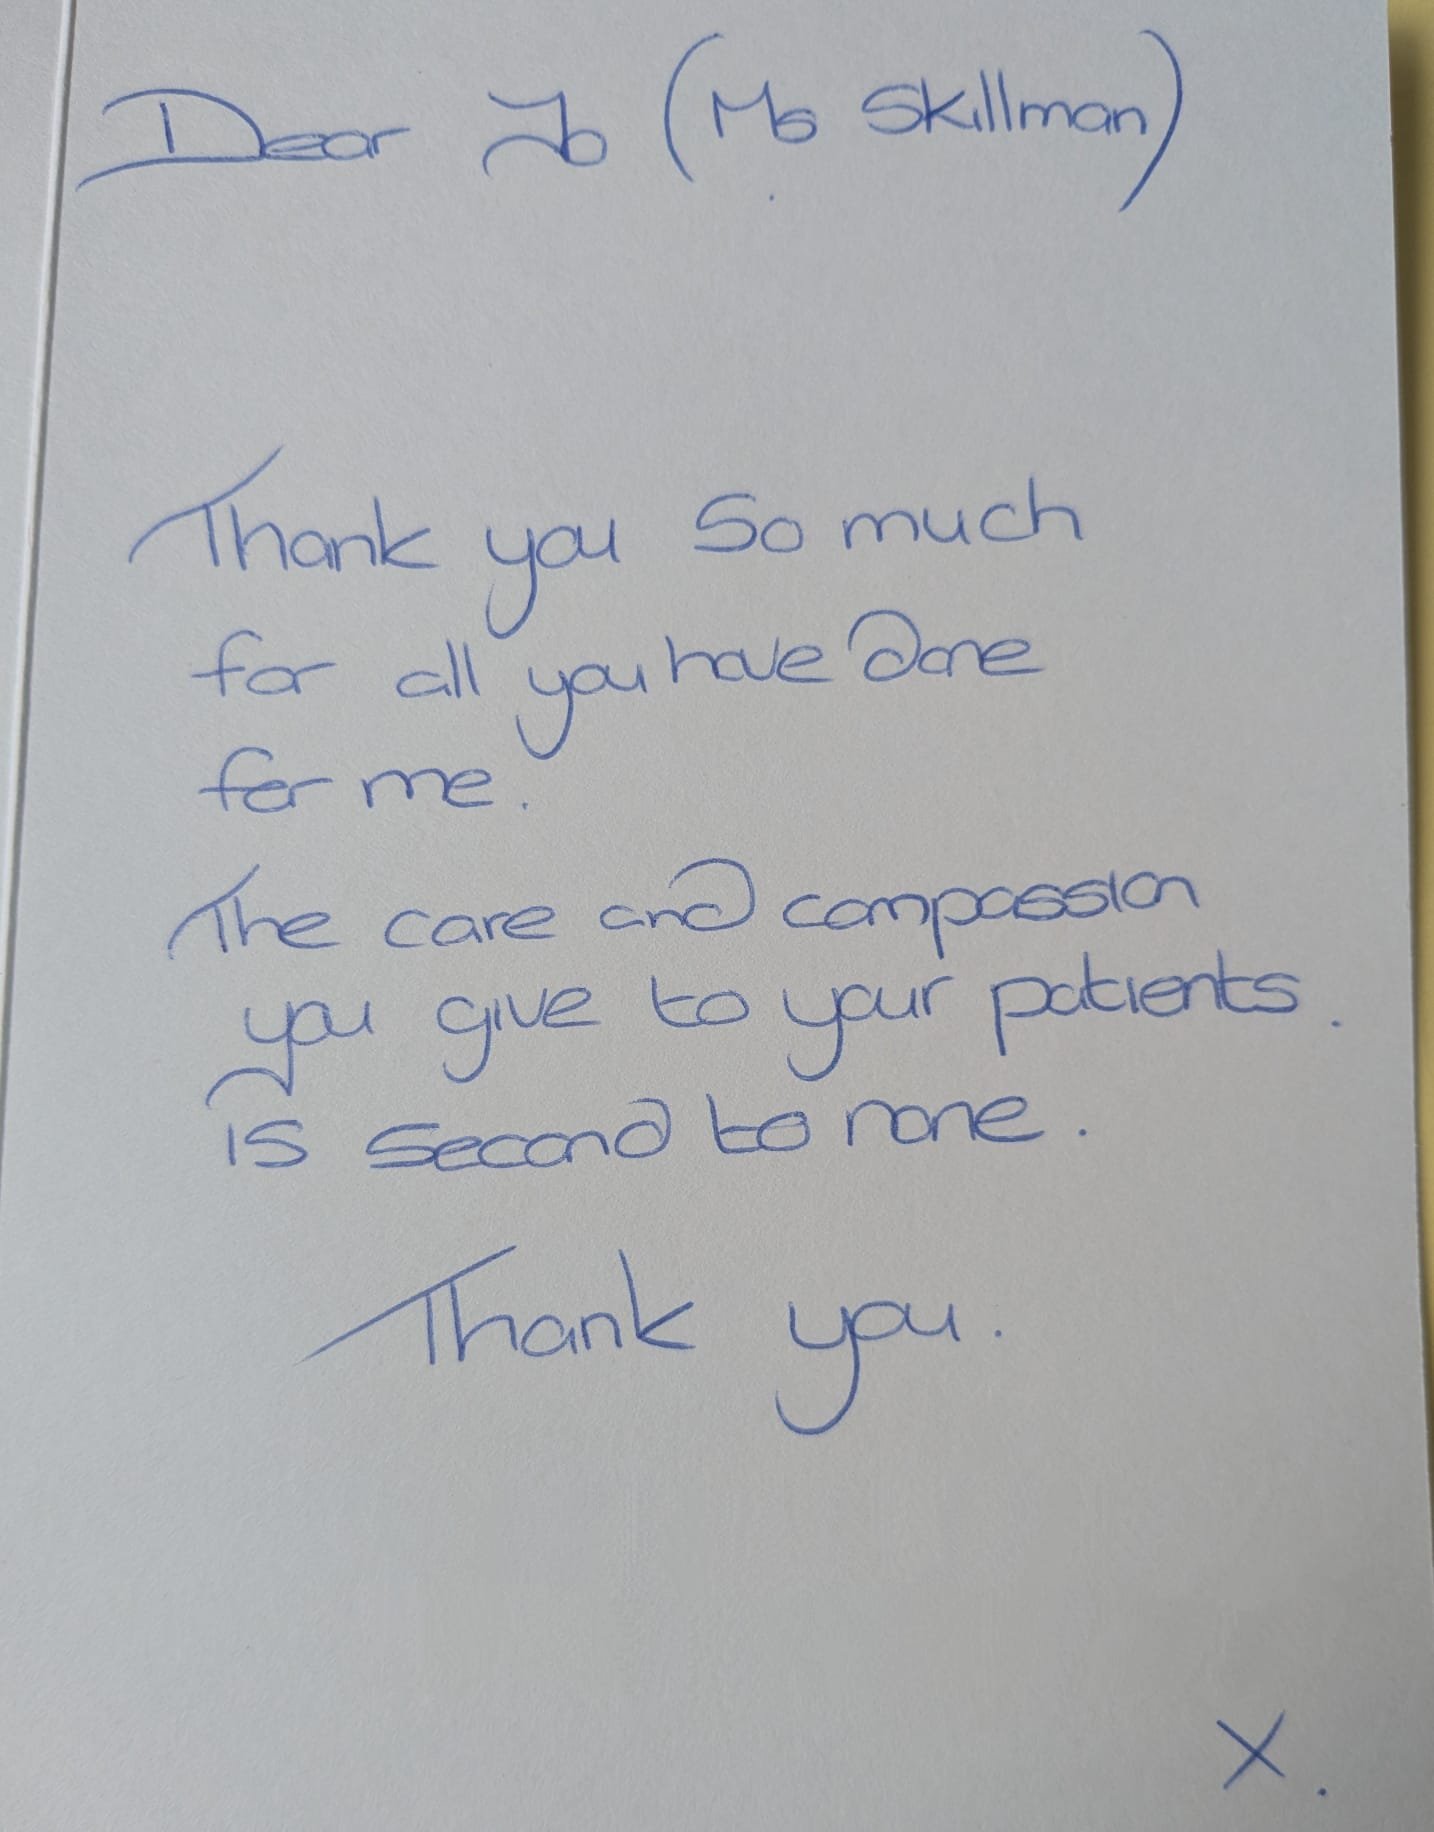 Dear Jo (Ms Skillman)
Thank you so much
for all you have done
for me.
The care and compassion
you give to your patients.
is second to none.
Thank you.
X.